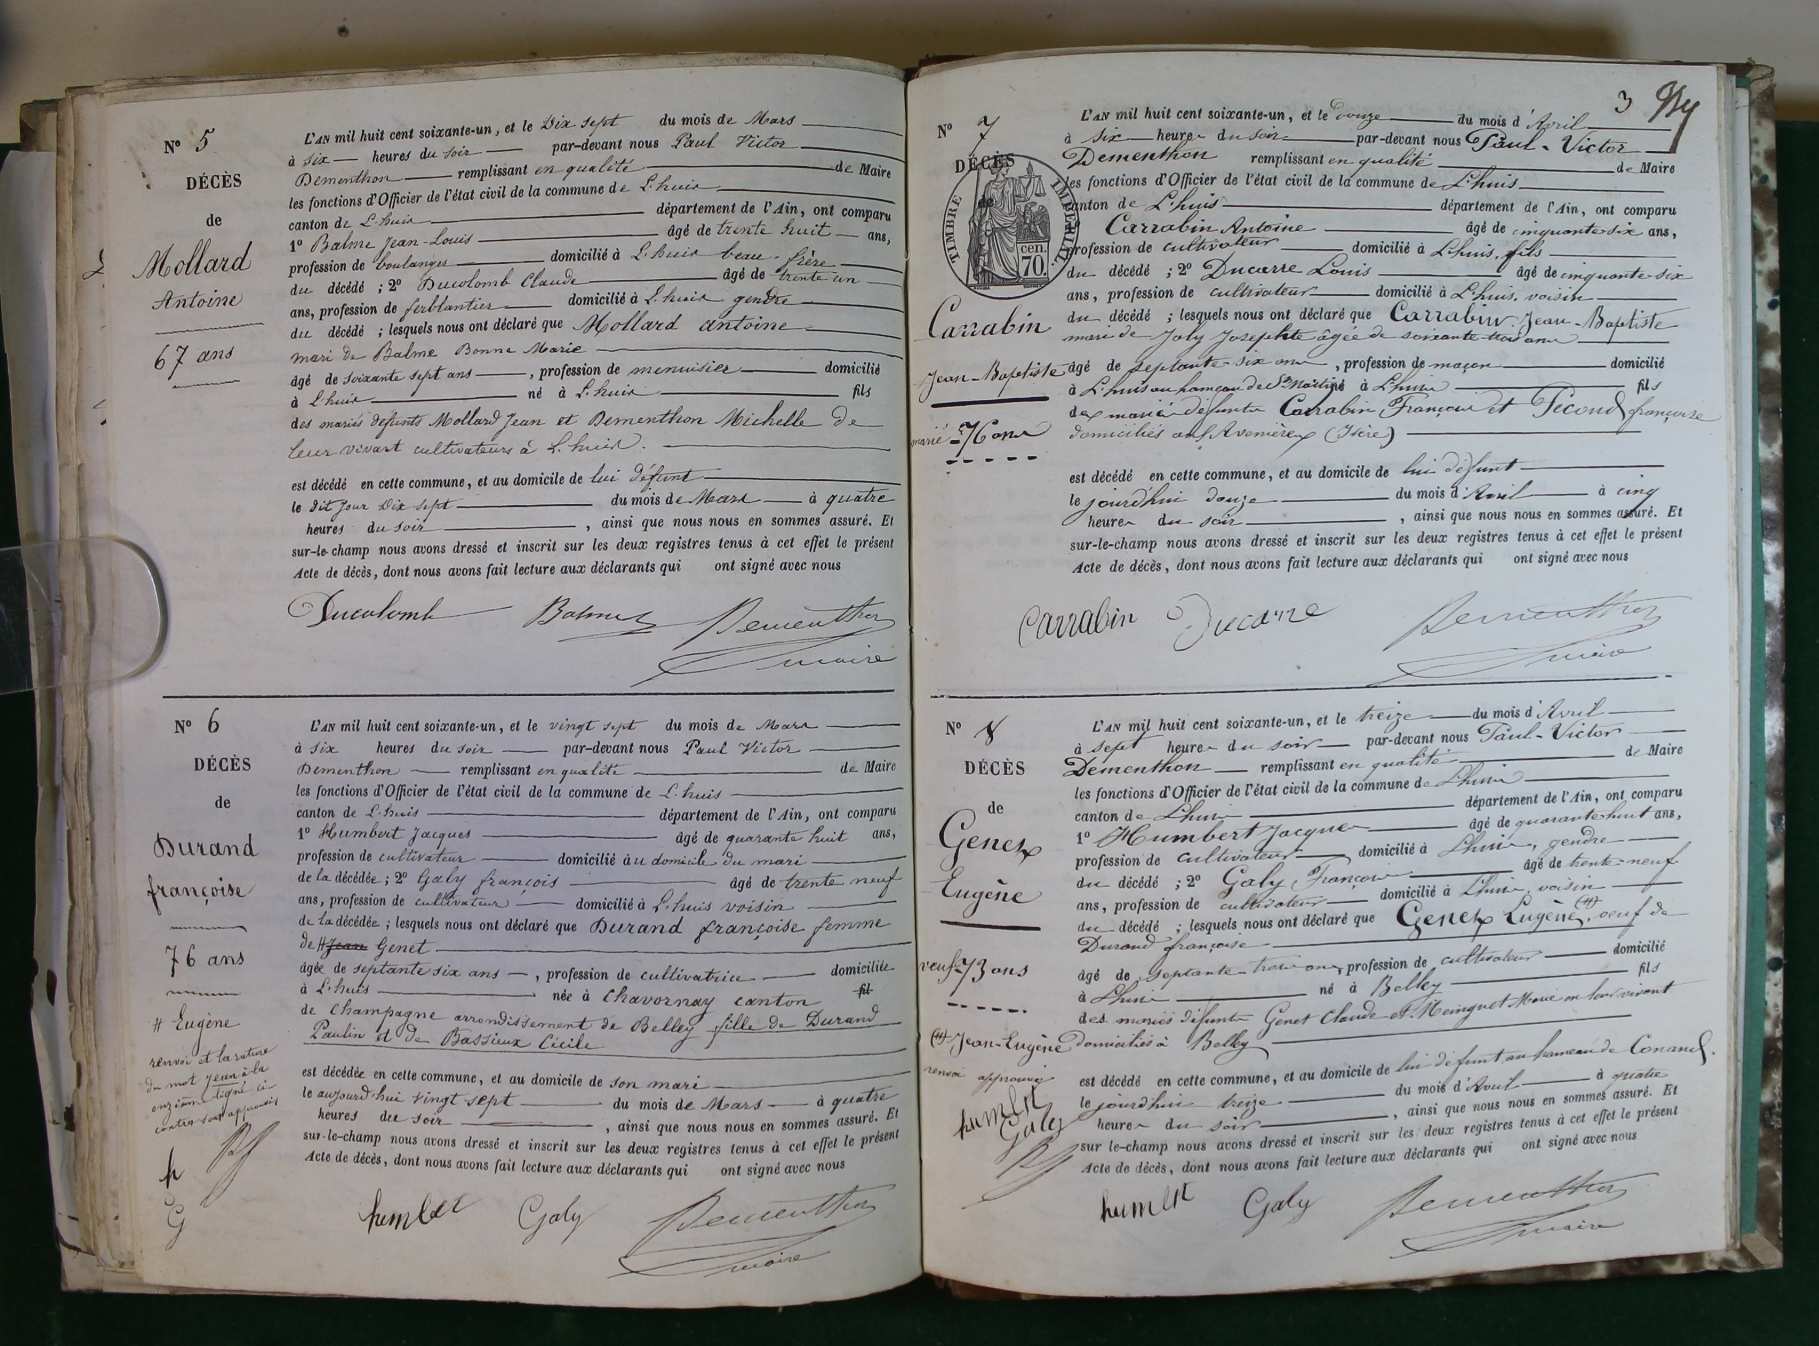 N° 5
DÉCÈS
de
Mollard
Antoine
67 ans
L'AN mil huit cent soixante-un, et le Dix sept du mois de Mars
à six heures du soir par-devant nous Paul Victor
Dementhon remplissant en qualité de Maire
les fonctions d'Officier de l'état civil de la commune de L'huis
canton de L'huis département de l'Ain, ont comparu
1° Balme Jean-Louis âgé de trente huit ans,
profession de boulanger domicilié à L'huis beau-frère
du décédé ; 2° Ducolomb Claude âgé de trente un
ans, profession de ferblantier domicilié à L'huis gendre
du décédé ; lesquels nous ont déclaré que Mollard antoine
mari de Balme Bonne Marie
âgé de soixante sept ans, profession de menuisier domicilié
à L'huis né à L'huis fils
des mariés defunts Mollard Jean et Dementhon Michelle de
leur vivant cultivateurs à L'huis.
est décédé en cette commune, et au domicile de lui défunt
le dit jour Dix sept du mois de Mars à quatre
heures du soir, ainsi que nous nous en sommes assuré. Et
sur-le-champ nous avons dressé et inscrit sur les deux registres tenus à cet effet le présent
Acte de décès, dont nous avons fait lecture aux déclarants qui ont signé avec nous
Ducolomb Balme Dementhon
maire
N° 6
DÉCÈS
de
Durand
françoise
76 ans
# Eugène
renvoi et la rature
du mot Jean à la
onzième ligne ci-
contre sont approuvés
h
G
L'AN mil huit cent soixante-un, et le vingt sept du mois de Mars
à six heures du soir par-devant nous Paul Victor
Dementhon remplissant en qualité de Maire
les fonctions d'Officier de l'état civil de la commune de L'huis
canton de L'huis département de l'Ain, ont comparu
1° Humbert Jacques âgé de quarante huit ans,
profession de cultivateur domicilié à au domicile du mari
de la décédée ; 2° Galy françois âgé de trente neuf
ans, profession de cultivateur domicilié à L'huis voisin
de la décédée ; lesquels nous ont déclaré que Durand françoise femme
de # Jean Genet
âgée de septante six ans, profession de cultivatrice domiciliée
à L'huis née à Chavornay canton fil
de Champagne arrondissement de Belley fille de Durand
Paulin et de Bassieux Cécile
est décédée en cette commune, et au domicile de son mari
le aujourd'hui vingt sept du mois de Mars à quatre
heures du soir, ainsi que nous nous en sommes assuré. Et
sur-le-champ nous avons dressé et inscrit sur les deux registres tenus à cet effet le présent
Acte de décès, dont nous avons fait lecture aux déclarants qui ont signé avec nous
humbert Galy Dementhon
maire
3
N° 7
DÉCÈS
de
TIMBRE IMPÉRIAL
70 cen.
Carrabin
Jean-Baptiste
marié 76 ans
L'AN mil huit cent soixante-un, et le douze du mois d'Avril
à six heures du soir par-devant nous Paul-Victor
Dementhon remplissant en qualité de Maire
les fonctions d'Officier de l'état civil de la commune de L'huis
canton de L'huis département de l'Ain, ont comparu
Carrabin Antoine âgé de cinquante-six ans,
profession de cultivateur domicilié à L'huis, fils
du décédé ; 2° Ducarre Louis âgé de cinquante-six
ans, profession de cultivateur domicilié à L'huis, voisin
du décédé ; lesquels nous ont déclaré que Carrabin Jean-Baptiste
mari de Joly Josephte âgée de soixante-trois ans
âgé de septante-six ans, profession de maçon domicilié
à L'huis au hameau de St Martin né à L'huis fils
des mariés défunts Carrabin François et Pécoud françoise
domiciliés aux Avenières (Isère)
est décédé en cette commune, et au domicile de lui défunt
le jourd'hui douze du mois d'Avril à cinq
heures du soir, ainsi que nous nous en sommes assuré. Et
sur-le-champ nous avons dressé et inscrit sur les deux registres tenus à cet effet le présent
Acte de décès, dont nous avons fait lecture aux déclarants qui ont signé avec nous
Carrabin Ducarre Dementhon
maire
N° 8
DÉCÈS
de
Genet
Eugène
veuf 73 ans
(#) Jean-Eugène
renvoi approuvé
humbert
Galy
L'AN mil huit cent soixante-un, et le treize du mois d'Avril
à sept heures du soir par-devant nous Paul-Victor
Dementhon remplissant en qualité de Maire
les fonctions d'Officier de l'état civil de la commune de L'huis
canton de L'huis département de l'Ain, ont comparu
1° Humbert Jacques âgé de quarante-huit ans,
profession de cultivateur domicilié à L'huis, gendre
du décédé ; 2° Galy François âgé de trente-neuf
ans, profession de cultivateur domicilié à L'huis, voisin
du décédé ; lesquels nous ont déclaré que Genet Eugène (#), veuf de
Durand françoise
âgé de septante-trois ans, profession de cultivateur domicilié
à L'huis né à Belley fils
des mariés défunts Genet Claude et Meinguet Marie en leur vivant
domiciliés à Belley
est décédé en cette commune, et au domicile de lui défunt au hameau de Conand.
le jourd'hui treize du mois d'Avril à quatre
heures du soir, ainsi que nous nous en sommes assuré. Et
sur-le-champ nous avons dressé et inscrit sur les deux registres tenus à cet effet le présent
Acte de décès, dont nous avons fait lecture aux déclarants qui ont signé avec nous
humbert Galy Dementhon
maire